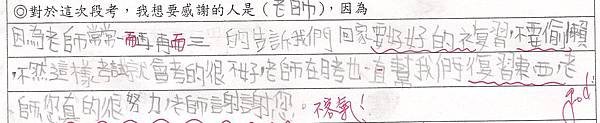 ◎對於這次段考，我想要感謝的人是（老師），因為
因為老師常常一而再再而三 的告訴我們回家要好好的複習不要偷懶
,不然這樣考試就會考的很不好,老師在時也有幫我們複習東西,老
師您真的很努力,老師謝謝您。不客氣! good!